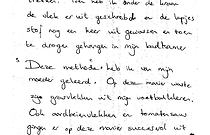 trekken. Toen heb ik onder de kraan
de vlek er uit geschrobd en de lapjes
stof nog een keer uit gewassen en toen
te drogen gehangen in mijn badkamer
5. Deze methode heb ik van mijn
moeder geleerd. Op deze manier waste
zij grasvlekken uit mijn voetbalkleren.
Ook aardbeienvlekken en tomatensaus
gingen er op deze manier succesvol uit